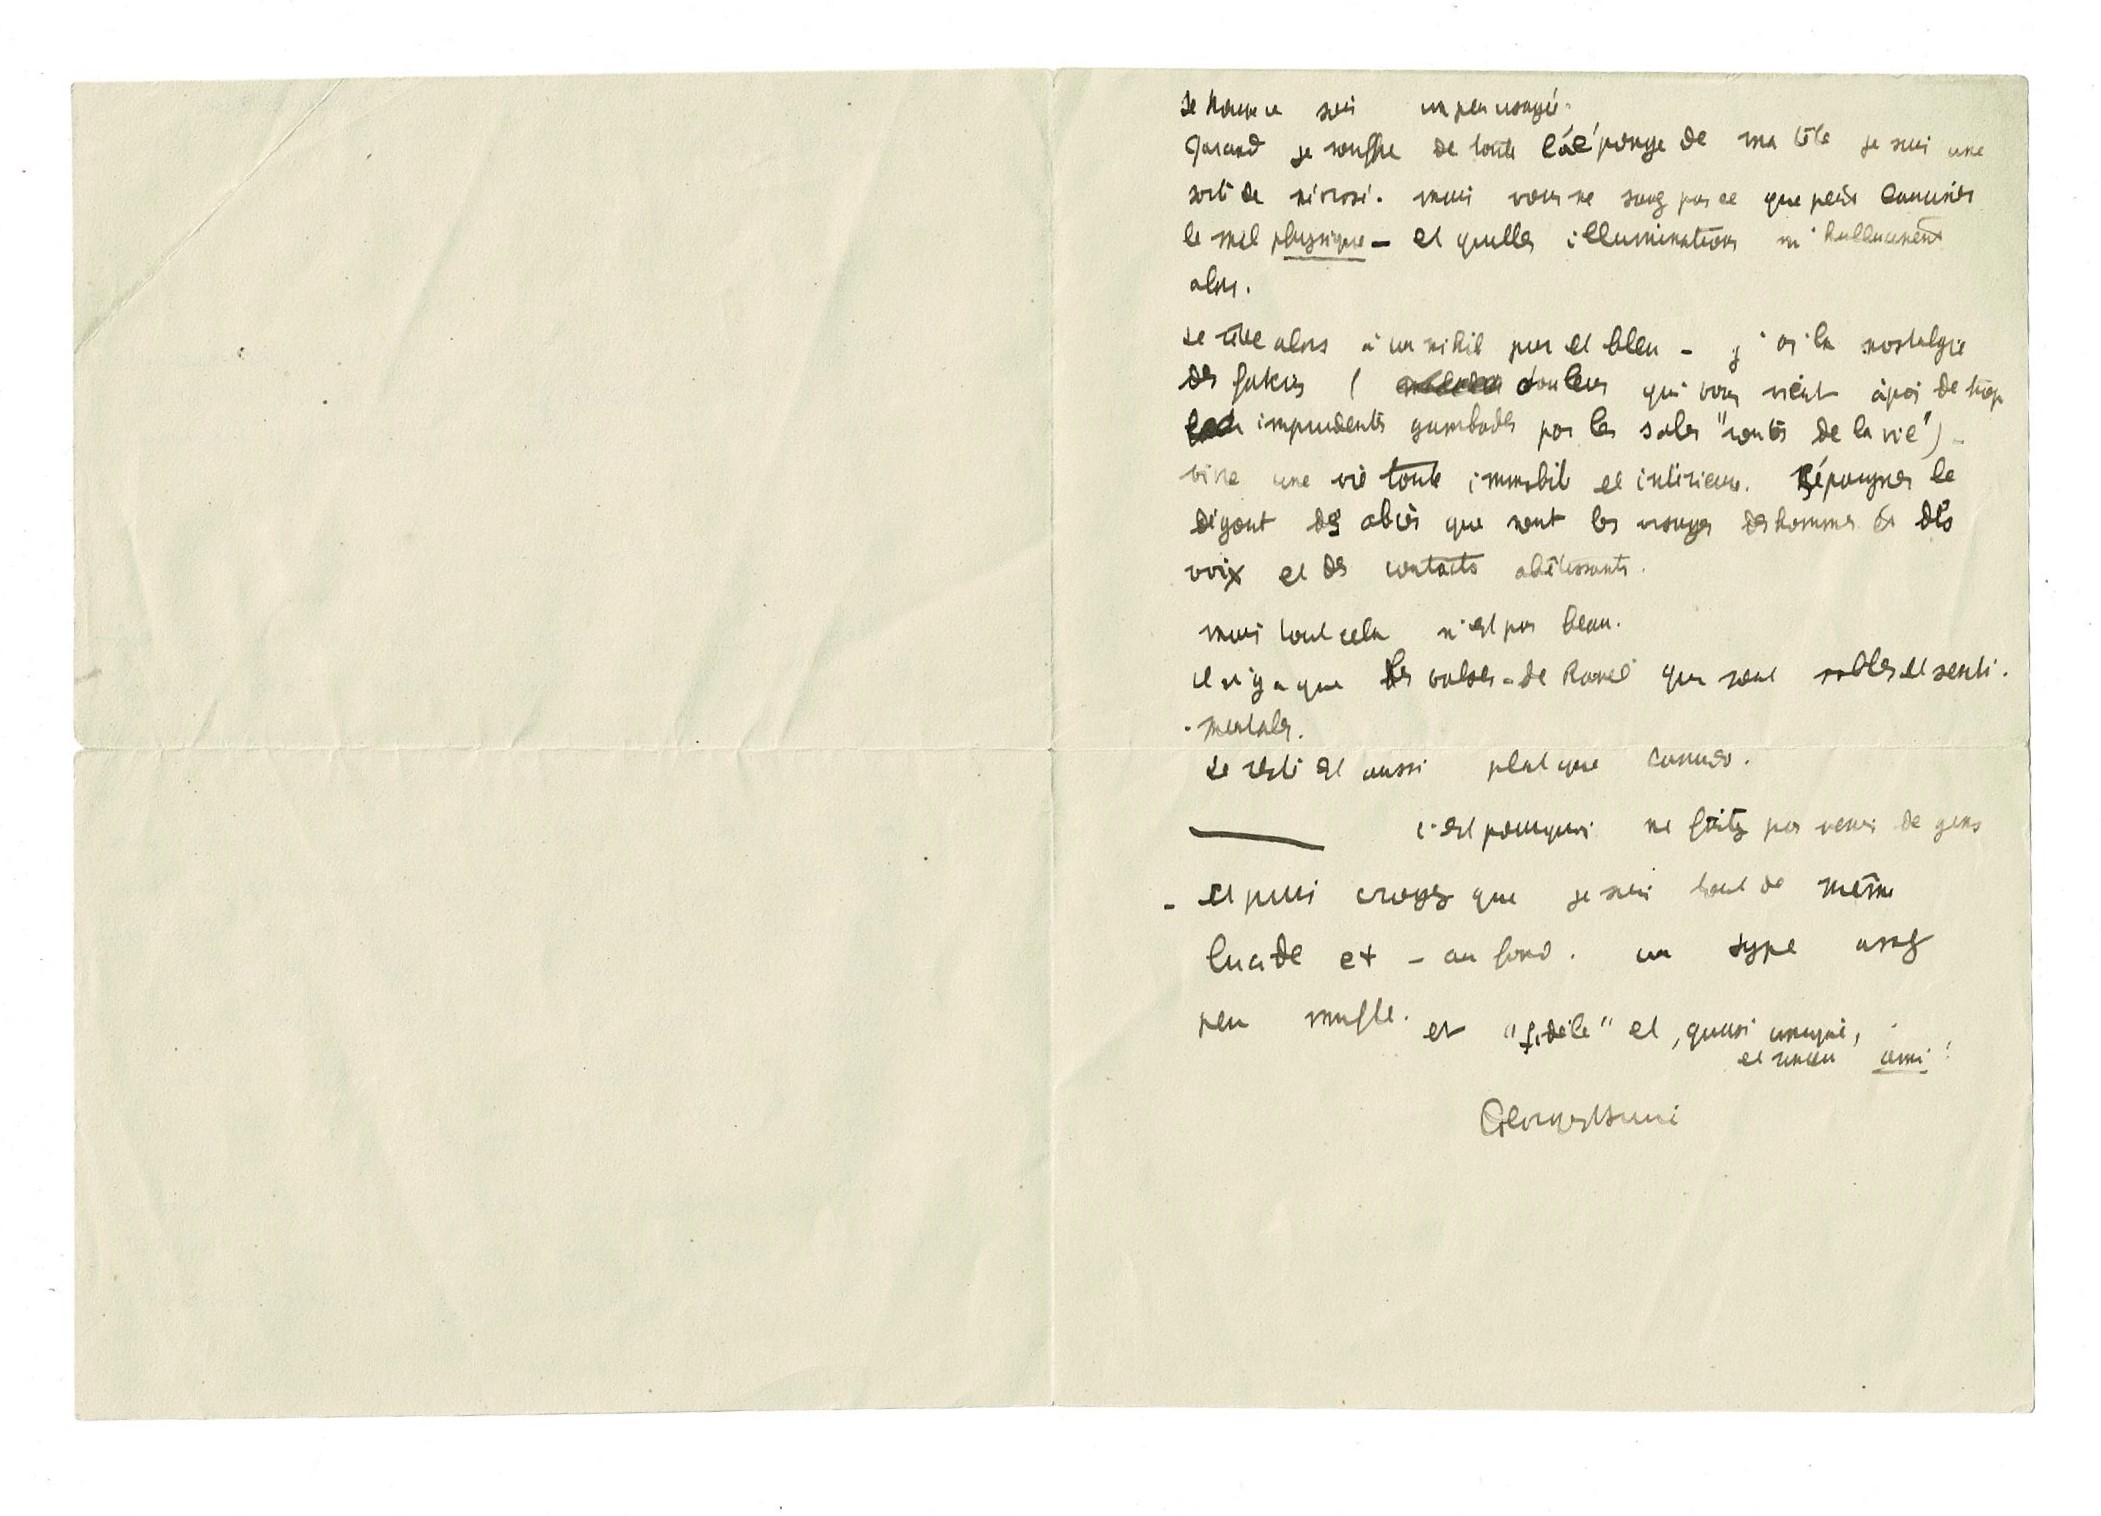 je suis un peu usagé.
Quand je souffre de toute l'éponge de ma tête je suis une
sorte de névrosé. mais vous ne savez pas ce que peut
le mal physique – et quelles illuminations m'hallucinent
alors.
Je rêve alors à un nihil pur et bleu – j'ai la nostalgie
des fakirs ( douleur qui vous vient de trop
imprudentes gambades par les sales "routes de la vie") –
vivre une vie toute immobile et intérieure. le
dégoût des abcès que sont les visages des hommes et des
voix et des contacts abêtissants.
mais tout cela n'est pas beau.
il n'y a que les valses – de Ravel qui sont nobles et senti-
-mentales.
Le reste est aussi plat que Canudo.
c'est pourquoi ne faites pas venir de gens
– et puis croyez que je suis tout de même
lucide et – au fond. un type assez
peu mufle. et "fidèle" et, quasi unique,
et ami !